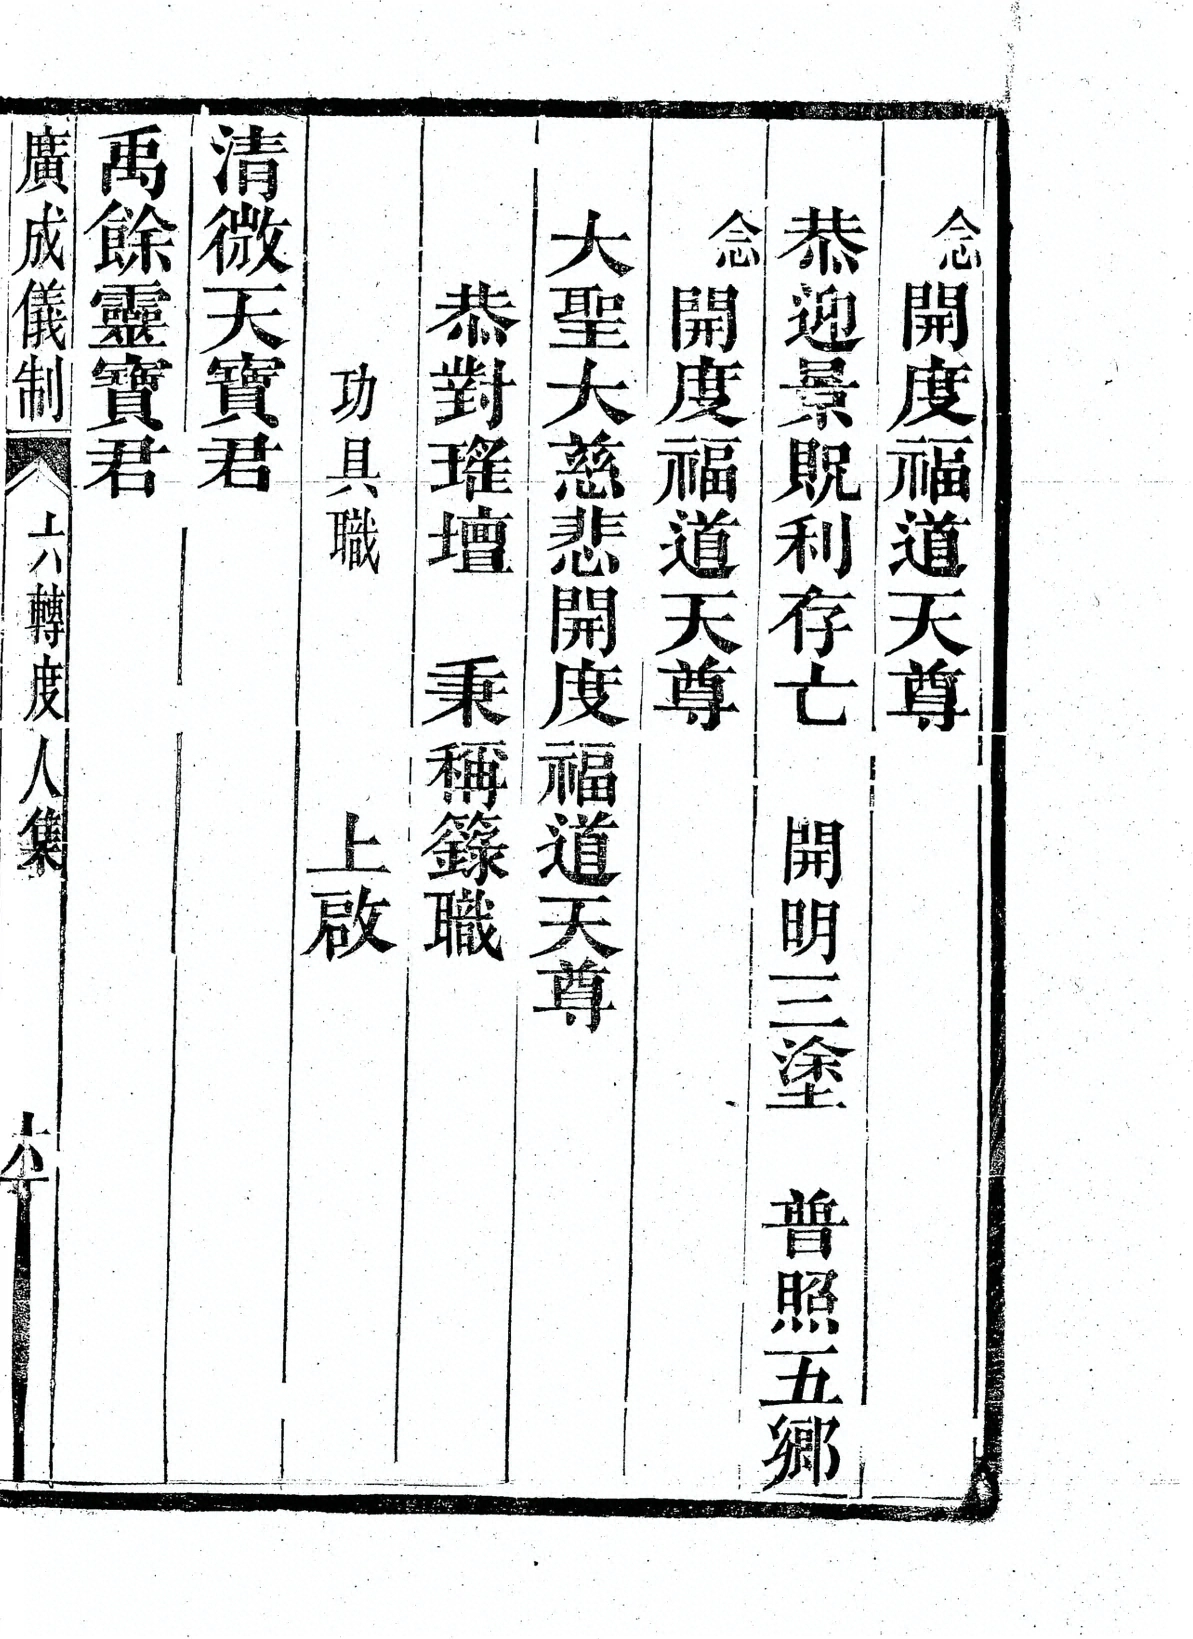 念開度福道天尊
恭迎景貺利存亡　開明三塗　普照五鄉
念開度福道天尊
大聖大慈悲開度福道天尊
恭對瑤壇　秉稱籙職
功具職　上啟
清微天寶君
禹餘靈寶君
廣成儀制　上六轉度人集